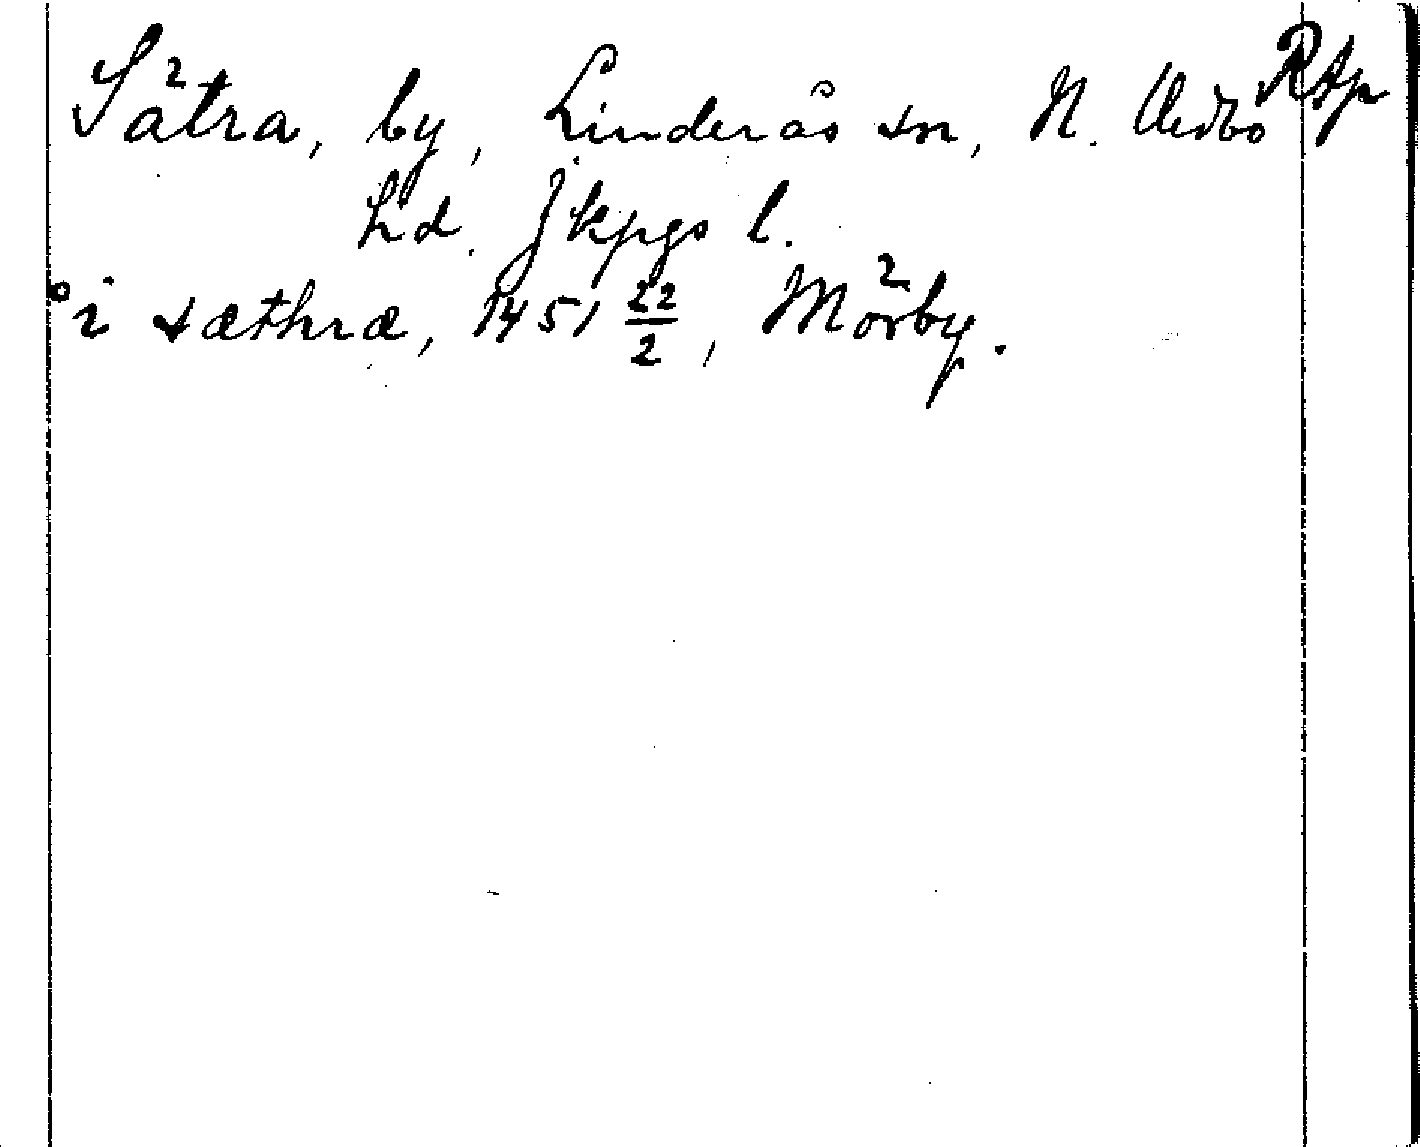 Sätra, by, Linderås sn, N. Vedbo RAp
hd. Jkpgs l.
i sæthræ, 1451 22/2, Mörby.